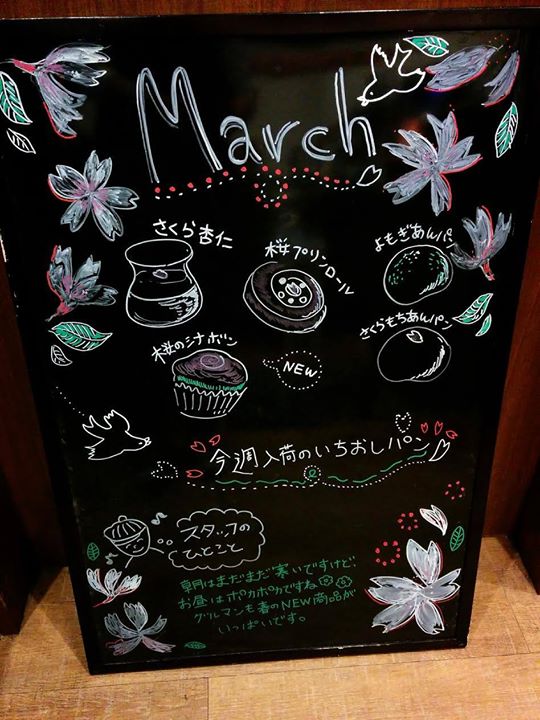 March
さくら杏仁
桜プリンロール
よもぎあんパ
さくらもちあんパン
桜のシナボン
NEW
今週入荷のいちおしパン
スタッフの
ひとこと
朝はまだまだ寒いですけど、
お昼はポカポカですね
グルマンも春のNEW商品が
いっぱいです。